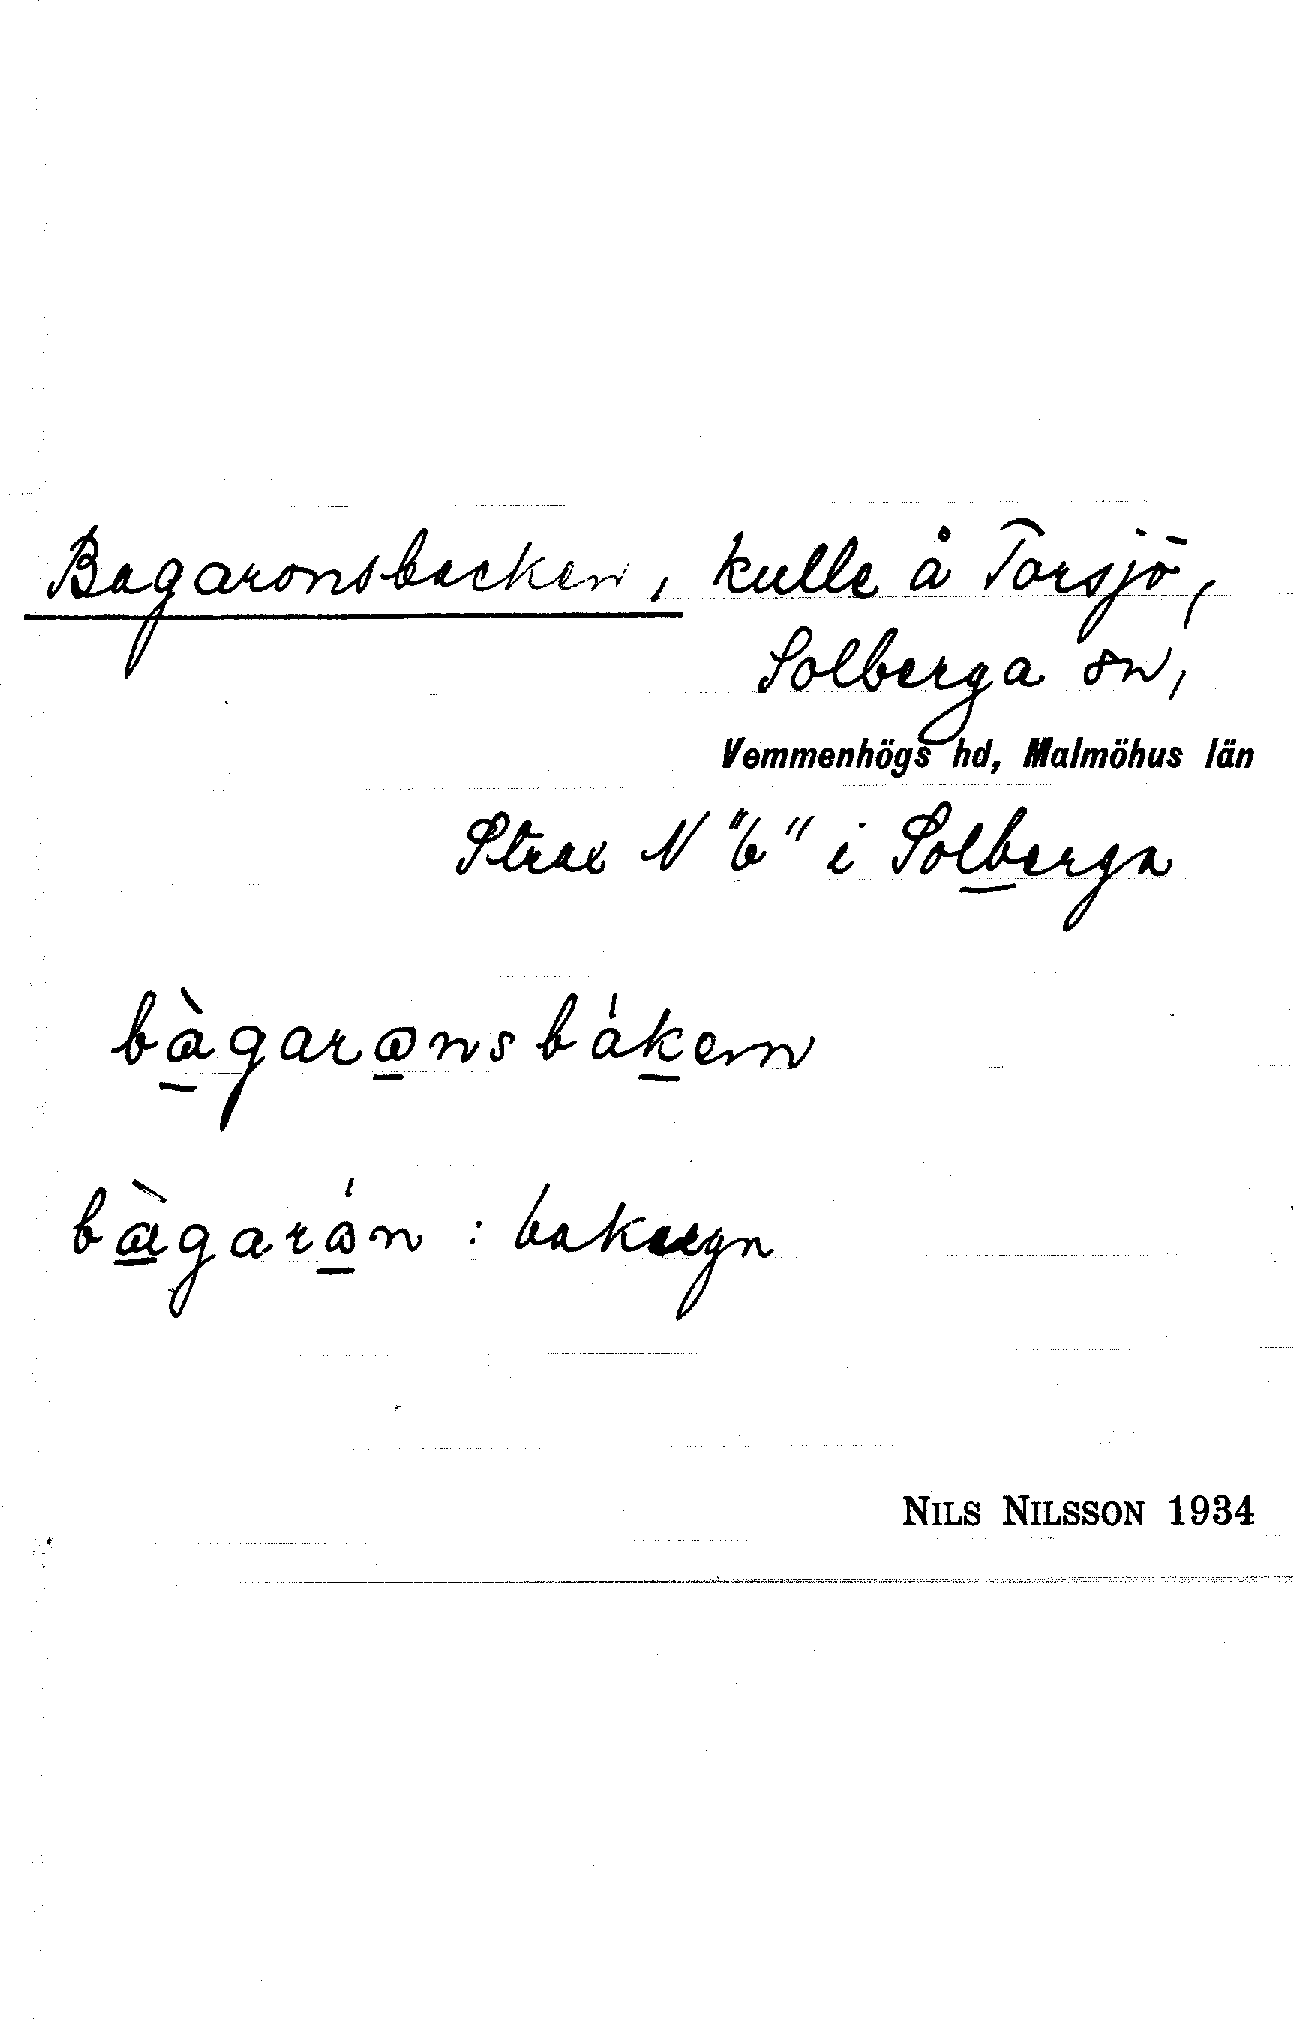 Bagaronsbacken, kulle å Torsjö,
Solberga sn,
Vemmenhögs hd, Malmöhus län
Strax N "b" i Solberga
bàgaronsbáken
bàgarón : bakugn
NILS NILSSON 1934